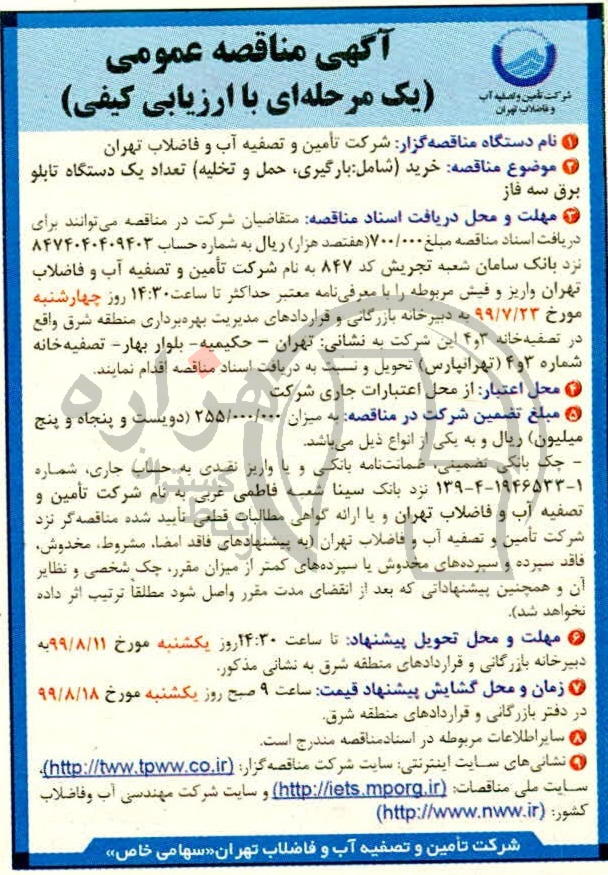 آگهی مناقصه عمومی
(یک مرحله‌ای با ارزیابی کیفی)
شرکت تأمین و تصفیه آب
و فاضلاب تهران
۱ نام دستگاه مناقصه‌گزار: شرکت تأمین و تصفیه آب و فاضلاب تهران
۲ موضوع مناقصه: خرید (شامل:بارگیری، حمل و تخلیه) تعداد یک دستگاه تابلو
برق سه فاز
۳ مهلت و محل دریافت اسناد مناقصه: متقاضیان شرکت در مناقصه می‌توانند برای
دریافت اسناد مناقصه مبلغ ۷۰۰/۰۰۰(هفتصد هزار) ریال به شماره حساب ۸۴۷۴۰۴۰۴۰۹۴۰۳
نزد بانک سامان شعبه تجریش کد ۸۴۷ به نام شرکت تأمین و تصفیه آب و فاضلاب
تهران واریز و فیش مربوطه را با معرفی‌نامه معتبر حداکثر تا ساعت ۱۴:۳۰ روز چهارشنبه
مورخ ۹۹/۷/۲۳ به دبیرخانه بازرگانی و قراردادهای مدیریت بهره‌برداری منطقه شرق واقع
در تصفیه‌خانه ۳و۴ این شرکت به نشانی: تهران - حکیمیه- بلوار بهار- تصفیه‌خانه
شماره ۳و۴ (تهرانپارس) تحویل و نسبت به دریافت اسناد مناقصه اقدام نمایند.
۴ محل اعتبار: از محل اعتبارات جاری شرکت
۵ مبلغ تضمین شرکت در مناقصه: به میزان ۲۵۵/۰۰۰/۰۰۰ (دویست و پنجاه و پنج
میلیون) ریال و به یکی از انواع ذیل می‌باشد.
- چک بانکی تضمینی، ضمانت‌نامه بانکی و یا واریز نقدی به حساب جاری، شماره
۱۳۹-۴-۱۹۴۶۵۳۳-۱ نزد بانک سینا شعبه فاطمی غربی به نام شرکت تأمین و
تصفیه آب و فاضلاب تهران و یا ارائه گواهی مطالبات قطعی تأیید شده مناقصه‌گر نزد
شرکت تأمین و تصفیه آب و فاضلاب تهران (به پیشنهادهای فاقد امضا، مشروط، مخدوش،
فاقد سپرده و سپرده‌های مخدوش یا سپرده‌های کمتر از میزان مقرر، چک شخصی و نظایر
آن و همچنین پیشنهاداتی که بعد از انقضای مدت مقرر واصل شود مطلقاً ترتیب اثر داده
نخواهد شد).
۶ مهلت و محل تحویل پیشنهاد: تا ساعت ۱۴:۳۰روز یکشنبه مورخ ۹۹/۸/۱۱به
دبیرخانه بازرگانی و قراردادهای منطقه شرق به نشانی مذکور.
۷ زمان و محل گشایش پیشنهاد قیمت: ساعت ۹ صبح روز یکشنبه مورخ ۹۹/۸/۱۸
در دفتر بازرگانی و قراردادهای منطقه شرق.
۸ سایر اطلاعات مربوطه در اسنادمناقصه مندرج است.
۹ نشانی‌های سایت اینترنتی: سایت شرکت مناقصه‌گزار: (http://tww.tpww.co.ir)،
سایت ملی مناقصات: (http://iets.mporg.ir) و سایت شرکت مهندسی آب وفاضلاب
کشور: (http://www.nww.ir)
شرکت تأمین و تصفیه آب و فاضلاب تهران«سهامی خاص»
هزاره